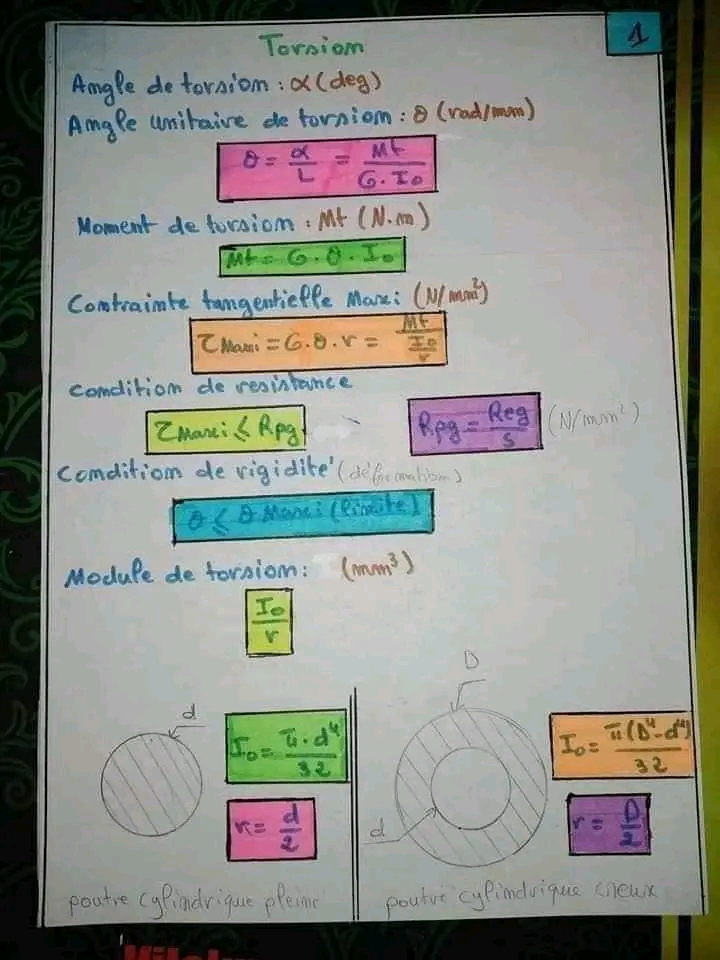 1
Torsion
Angle de torsion : α (deg)
Angle unitaire de torsion : θ (rad/mm)
θ = α/L = Mt/G.I₀
Moment de torsion : Mt (N.m)
Mt = G.θ.I₀
Contrainte tangentielle Maxi (N/mm²)
τMaxi = G.θ.r = Mt/(I₀/r)
Condition de resistance
τMaxi ≤ Rpg
Rpg = Reg/s (N/mm²)
Condition de rigidité (déformation)
θ ≤ θ Maxi (limite)
Module de torsion : (mm³)
I₀/r
d
I₀ = π.d⁴/32
r = d/2
poutre cylindrique pleine
D
I₀ = π(D⁴-d⁴)/32
d
r = D/2
poutre cylindrique creux